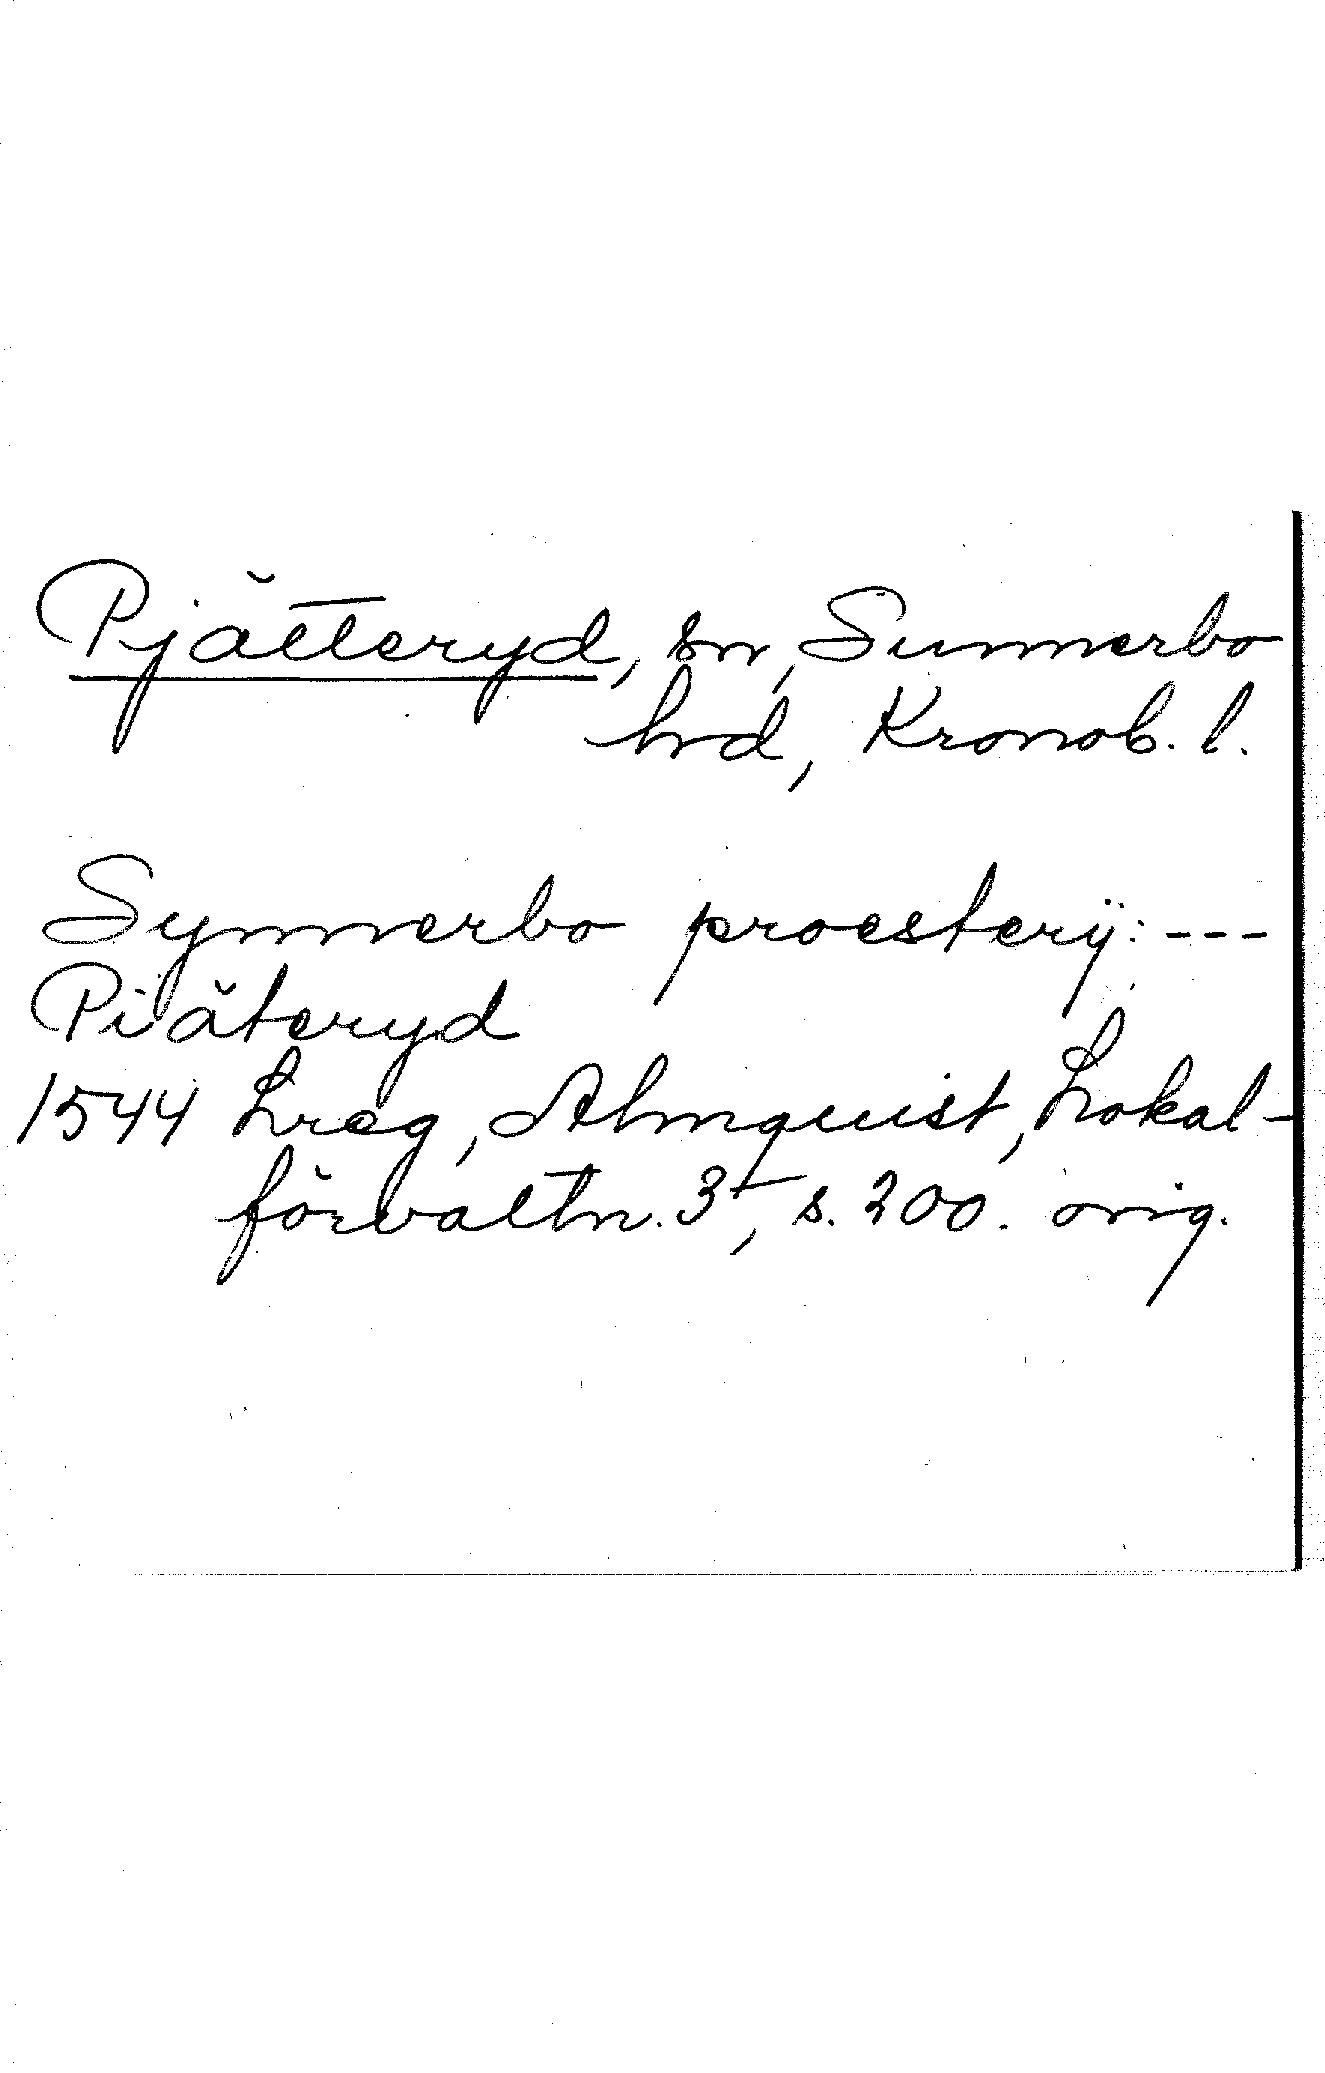 Pjätteryd, sn, Sunnerbo
hd, Kronob. l.
Synnerbo proesterÿ: ---
Piäteryd
1544 Lreg, Almquist, Lokal-
förvaltn. 3, s. 200. orig.